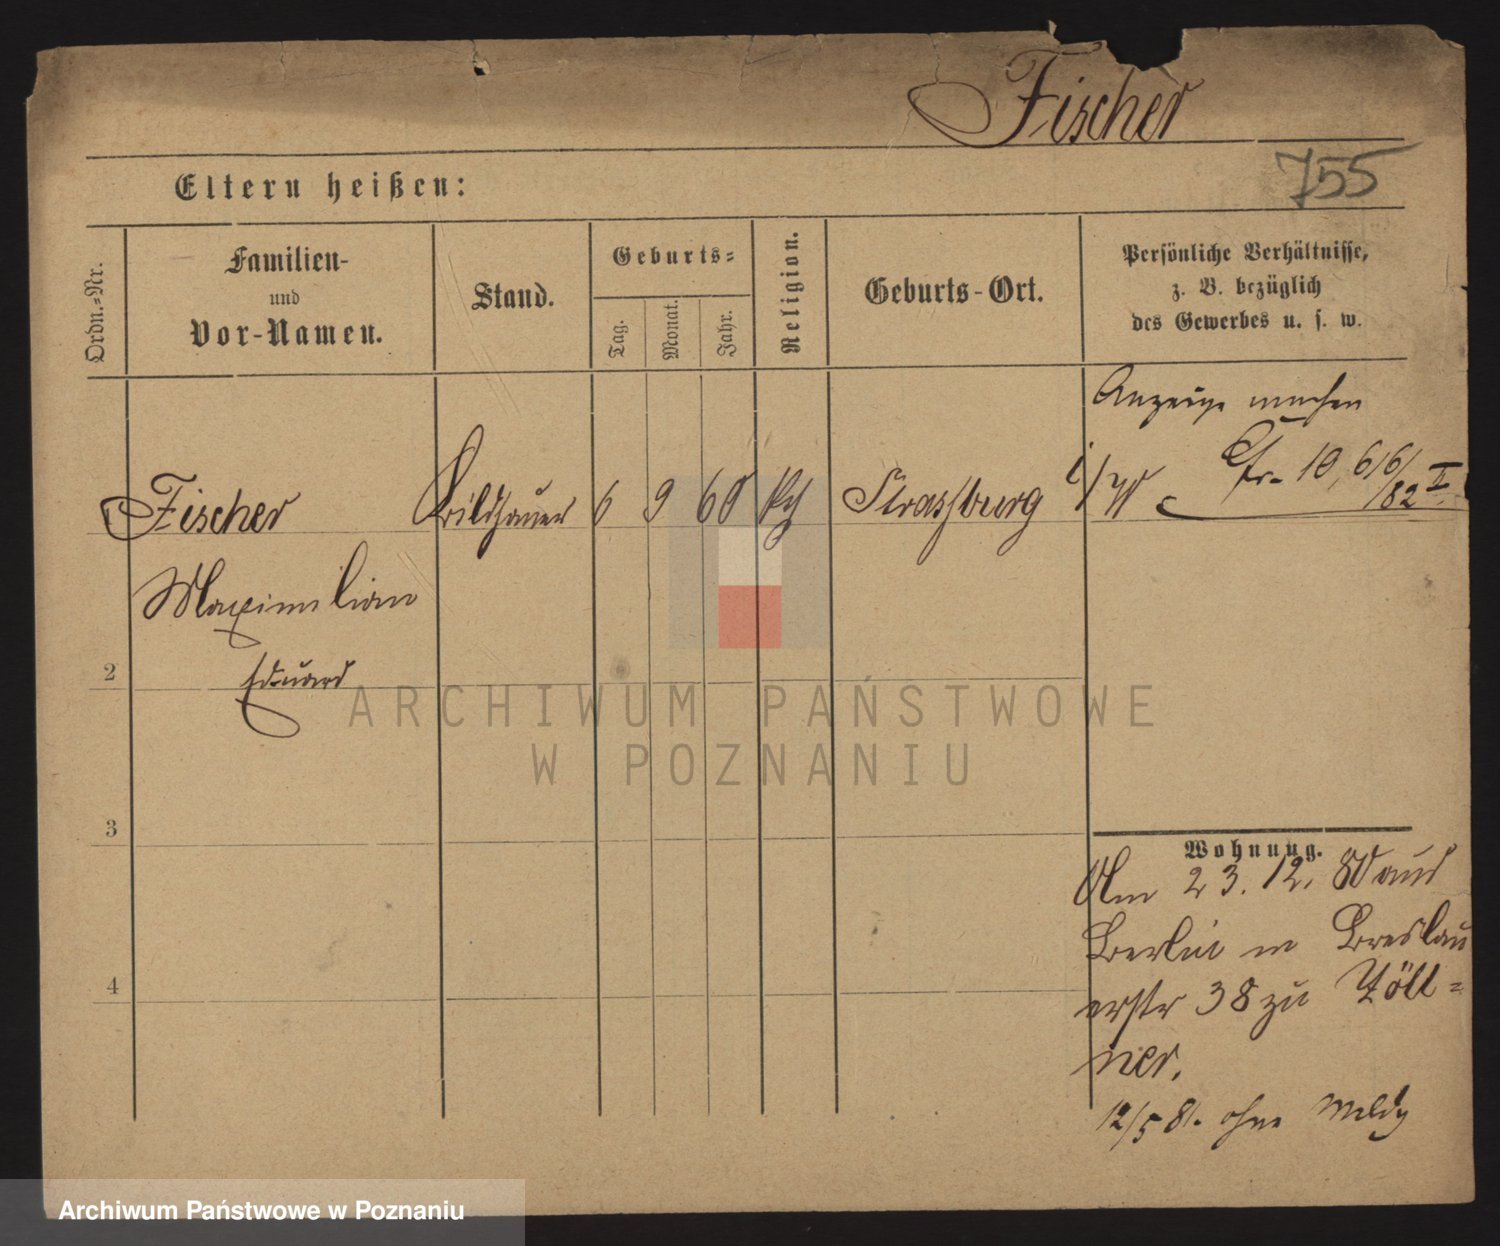 Fischer
755
Eltern heißen:
Ordn.-Nr.
Familien-
und
Vor-Namen.
Stand.
Geburts-
Tag.
Monat.
Jahr.
Religion.
Geburts-Ort.
Persönliche Verhältnisse,
z. B. bezüglich
des Gewerbes u. s. w.
Anzeige machen
Fischer Bildhauer 6 9 60 Strassburg i/
10, 6/6/82 I
Maximilian
Eduard
2
3
4
Wohnung.
Am 23. 12. 80 aus
Berlin in Breslau
erstr 38 zu Zöll=
ner.
12/5 81. ohne Meldg
ARCHIWUM PAŃSTWOWE
W POZNANIU
Archiwum Państwowe w Poznaniu